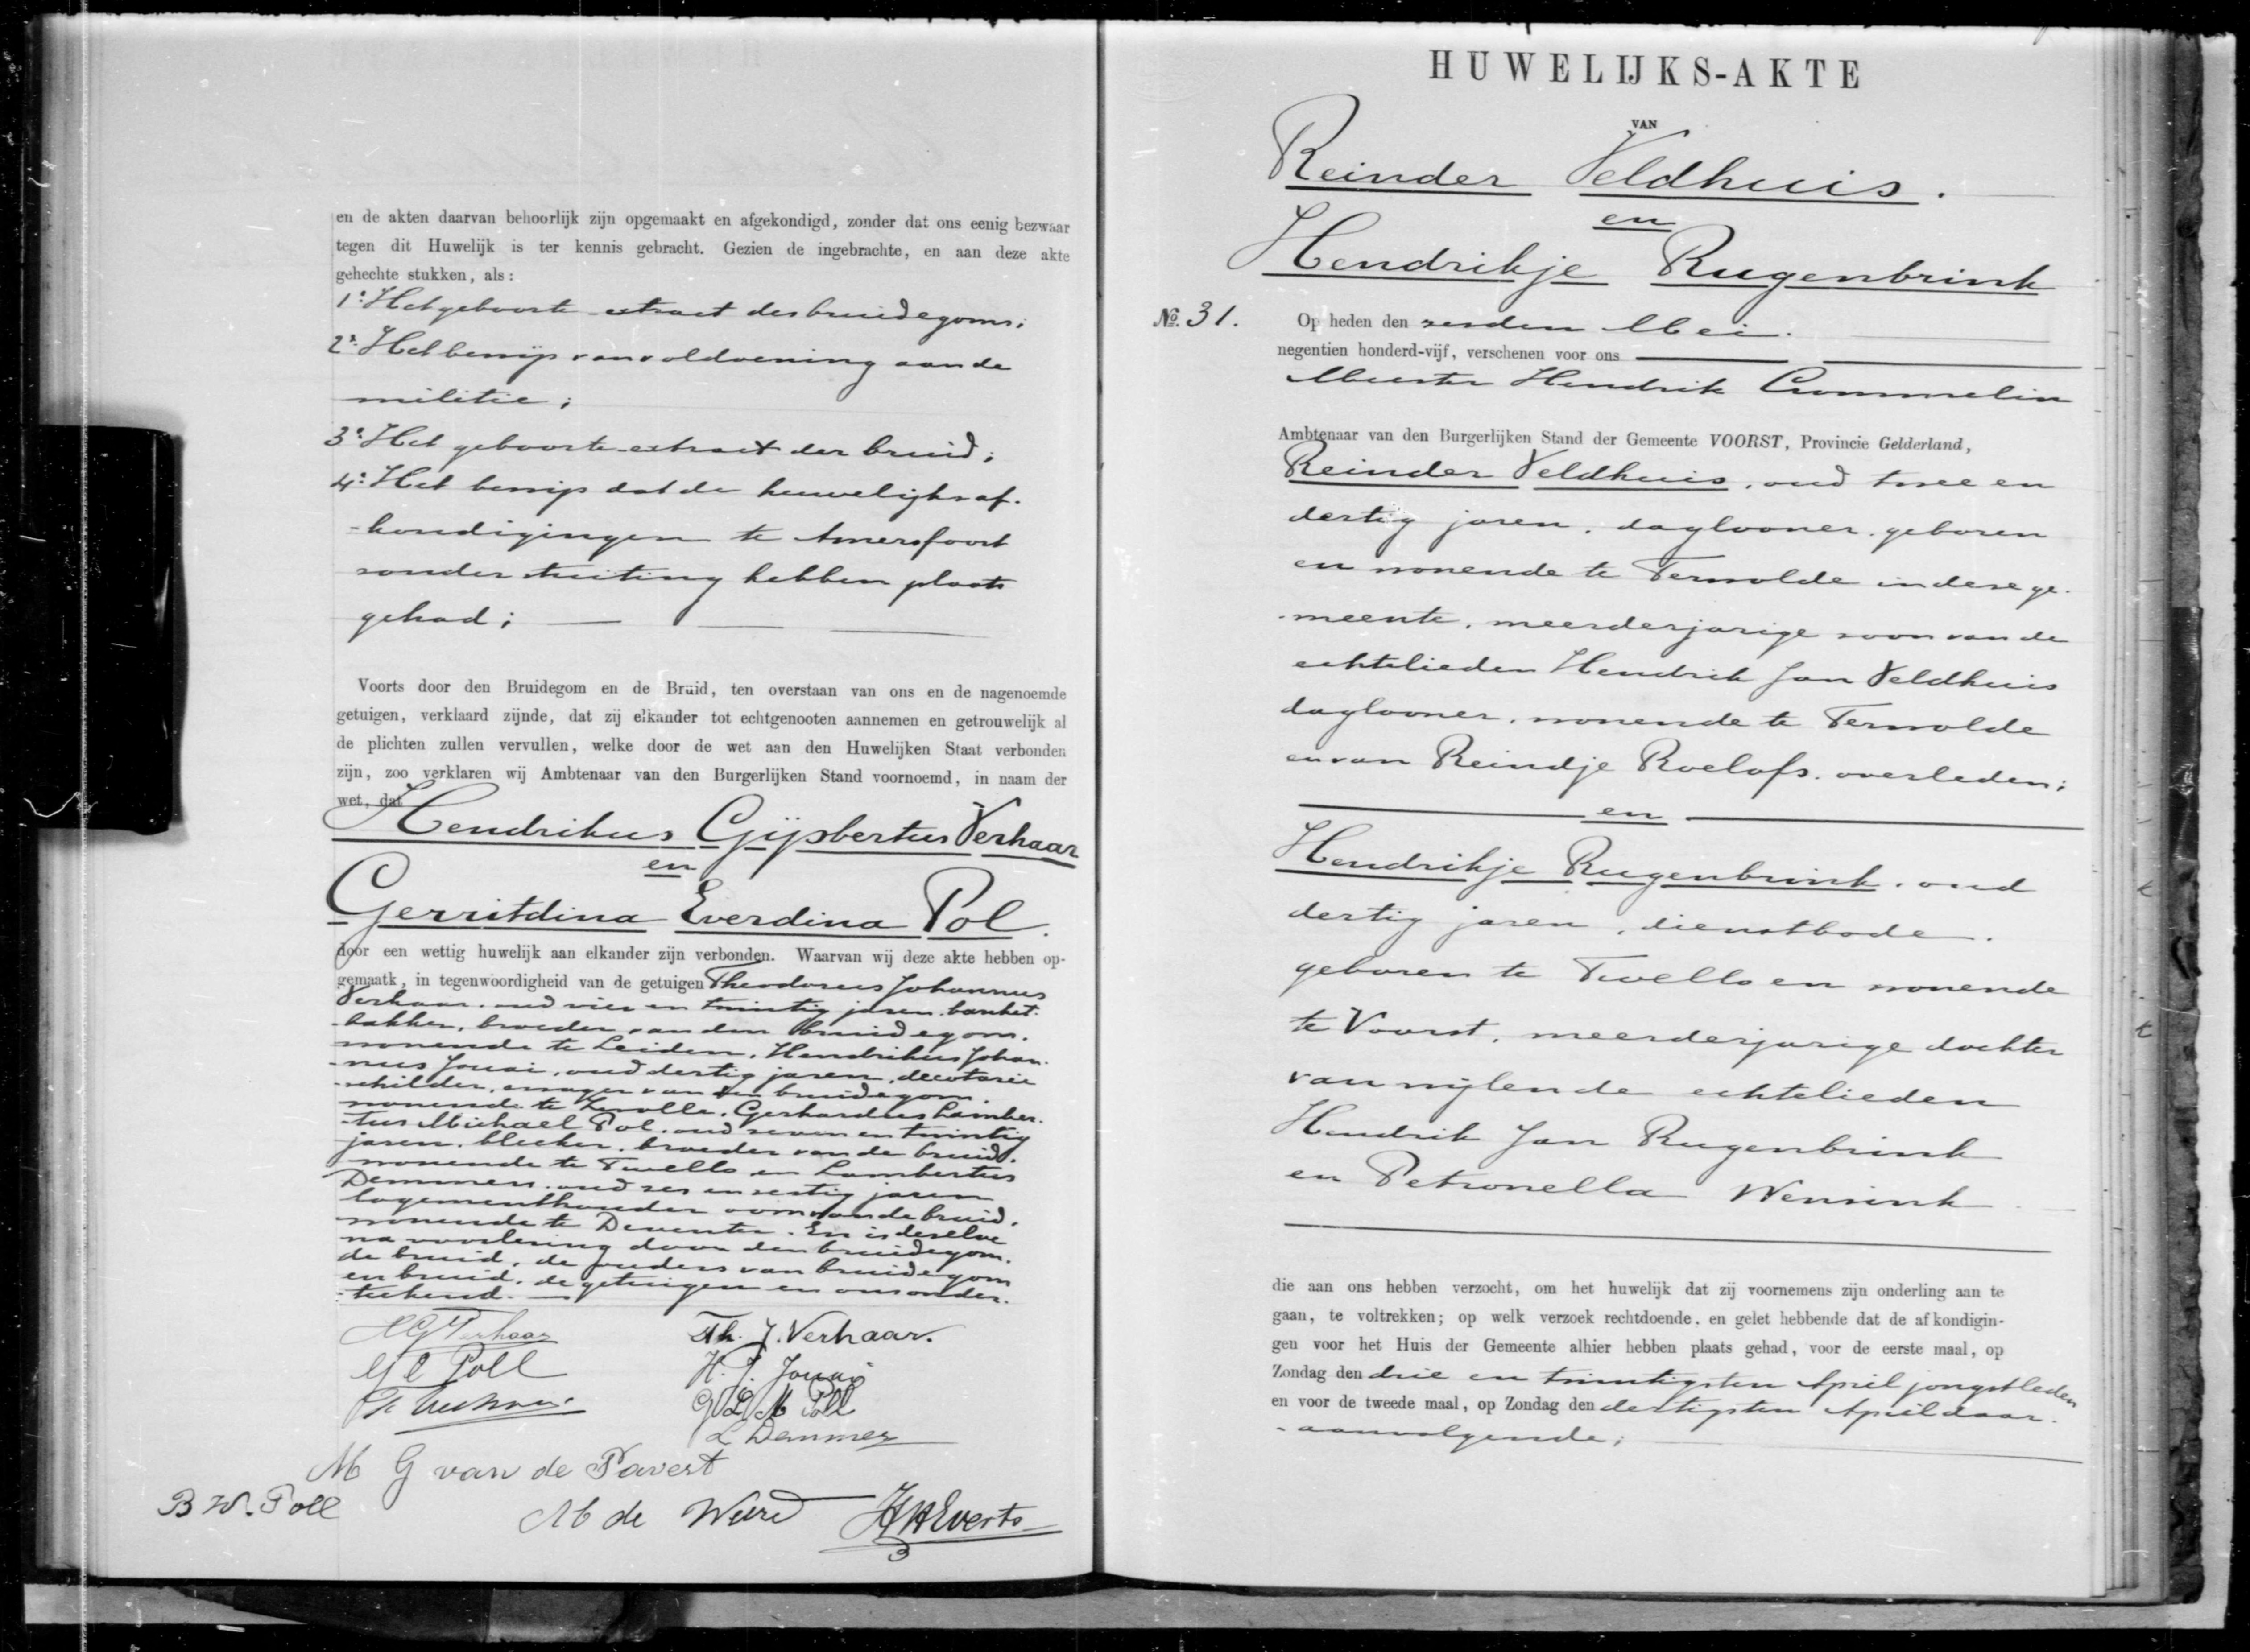 en de akten daarvan behoorlijk zijn opgemaakt en afgekondigd, zonder dat ons eenig bezwaar
tegen dit Huwelijk is ter kennis gebracht. Gezien de ingebrachte, en aan deze akte
gehechte stukken, als:
1o. Het geboorte-extract des bruidegoms;
2o. Het bewijs van voldoening aan de
militie;
3o. Het geboorte-extract der bruid;
4o. Het bewijs dat de huwelijksaf-
-kondigingen te Amersfoort
zonder stuiting hebben plaats
gehad;
Voorts door den Bruidegom en de Bruid, ten overstaan van ons en de nagenoemde
getuigen, verklaard zijnde, dat zij elkander tot echtgenooten aannemen en getrouwelijk al
de plichten zullen vervullen, welke door de wet aan den Huwelijken Staat verbonden
zijn, zoo verklaren wij Ambtenaar van den Burgerlijken Stand voornoemd, in naam der
wet, dat
Hendrikus Gijsbertus Verhaar
en
Gerritdina Everdina Pol.
door een wettig huwelijk aan elkander zijn verbonden. Waarvan wij deze akte hebben op-
gemaatk, in tegenwoordigheid van de getuigen Theodorus Johannus
Verhaar, oud vier en twintig jaren, banket-
-bakker, broeder van den bruidegom,
wonende te Leiden, Hendrikus Johan-
-nus Jouai, oud dertig jaren, decoratie
-schilder, zwager van den bruidegom,
wonende te Zwolle, Gerhardus Lamber-
-tus Michael Pol, oud zeven en twintig
jaren, bleeker, broeder van de bruid,
wonende te Twello en Lambertus
Demmers, oud zes en zestig jaren
logementhouder oom van de bruid,
wonende te Deventer. En is dezelve
na voorlezing door den bruidegom,
de bruid, de ouders van bruidegom
en bruid, de getuigen en ons onder-
-teekend.
HG Verhaar Th. J. Verhaar.
G E Poll H. J. Jouai
Verhaar G L M Poll
L Demmer
M G van de Pavert
B W. Poll M de Weerd HWEverts
HUWELIJKS-AKTE
VAN
Reinder Veldhuis.
en
Hendrikje Rugenbrink
No. 31. Op heden den zesden Mei.
negentien honderd-vijf, verschenen voor ons
Meester Hendrik Crommelin
Ambtenaar van den Burgerlijken Stand der Gemeente VOORST, Provincie Gelderland,
Reinder Veldhuis, oud twee en
dertig jaren, daglooner, geboren
en wonende te Terwolde in deze ge-
-meente, meerderjarige zoon van de
echtelieden Hendrik Jan Veldhuis
daglooner, wonende te Terwolde
en van Reindje Roelofs, overleden;
en
Hendrikje Rugenbrink, oud
dertig jaren, dienstbode,
geboren te Twello en wonende
te Voorst, meerderjarige dochter
van wijlen de echtelieden
Hendrik Jan Rugenbrink
en Petronella Wensink
die aan ons hebben verzocht, om het huwelijk dat zij voornemens zijn onderling aan te
gaan, te voltrekken; op welk verzoek rechtdoende, en gelet hebbende dat de afkondigin-
gen voor het Huis der Gemeente alhier hebben plaats gehad, voor de eerste maal, op
Zondag den drie en twintigsten April jongstleden
en voor de tweede maal, op Zondag den dertigsten April daar-
-aanvolgende;